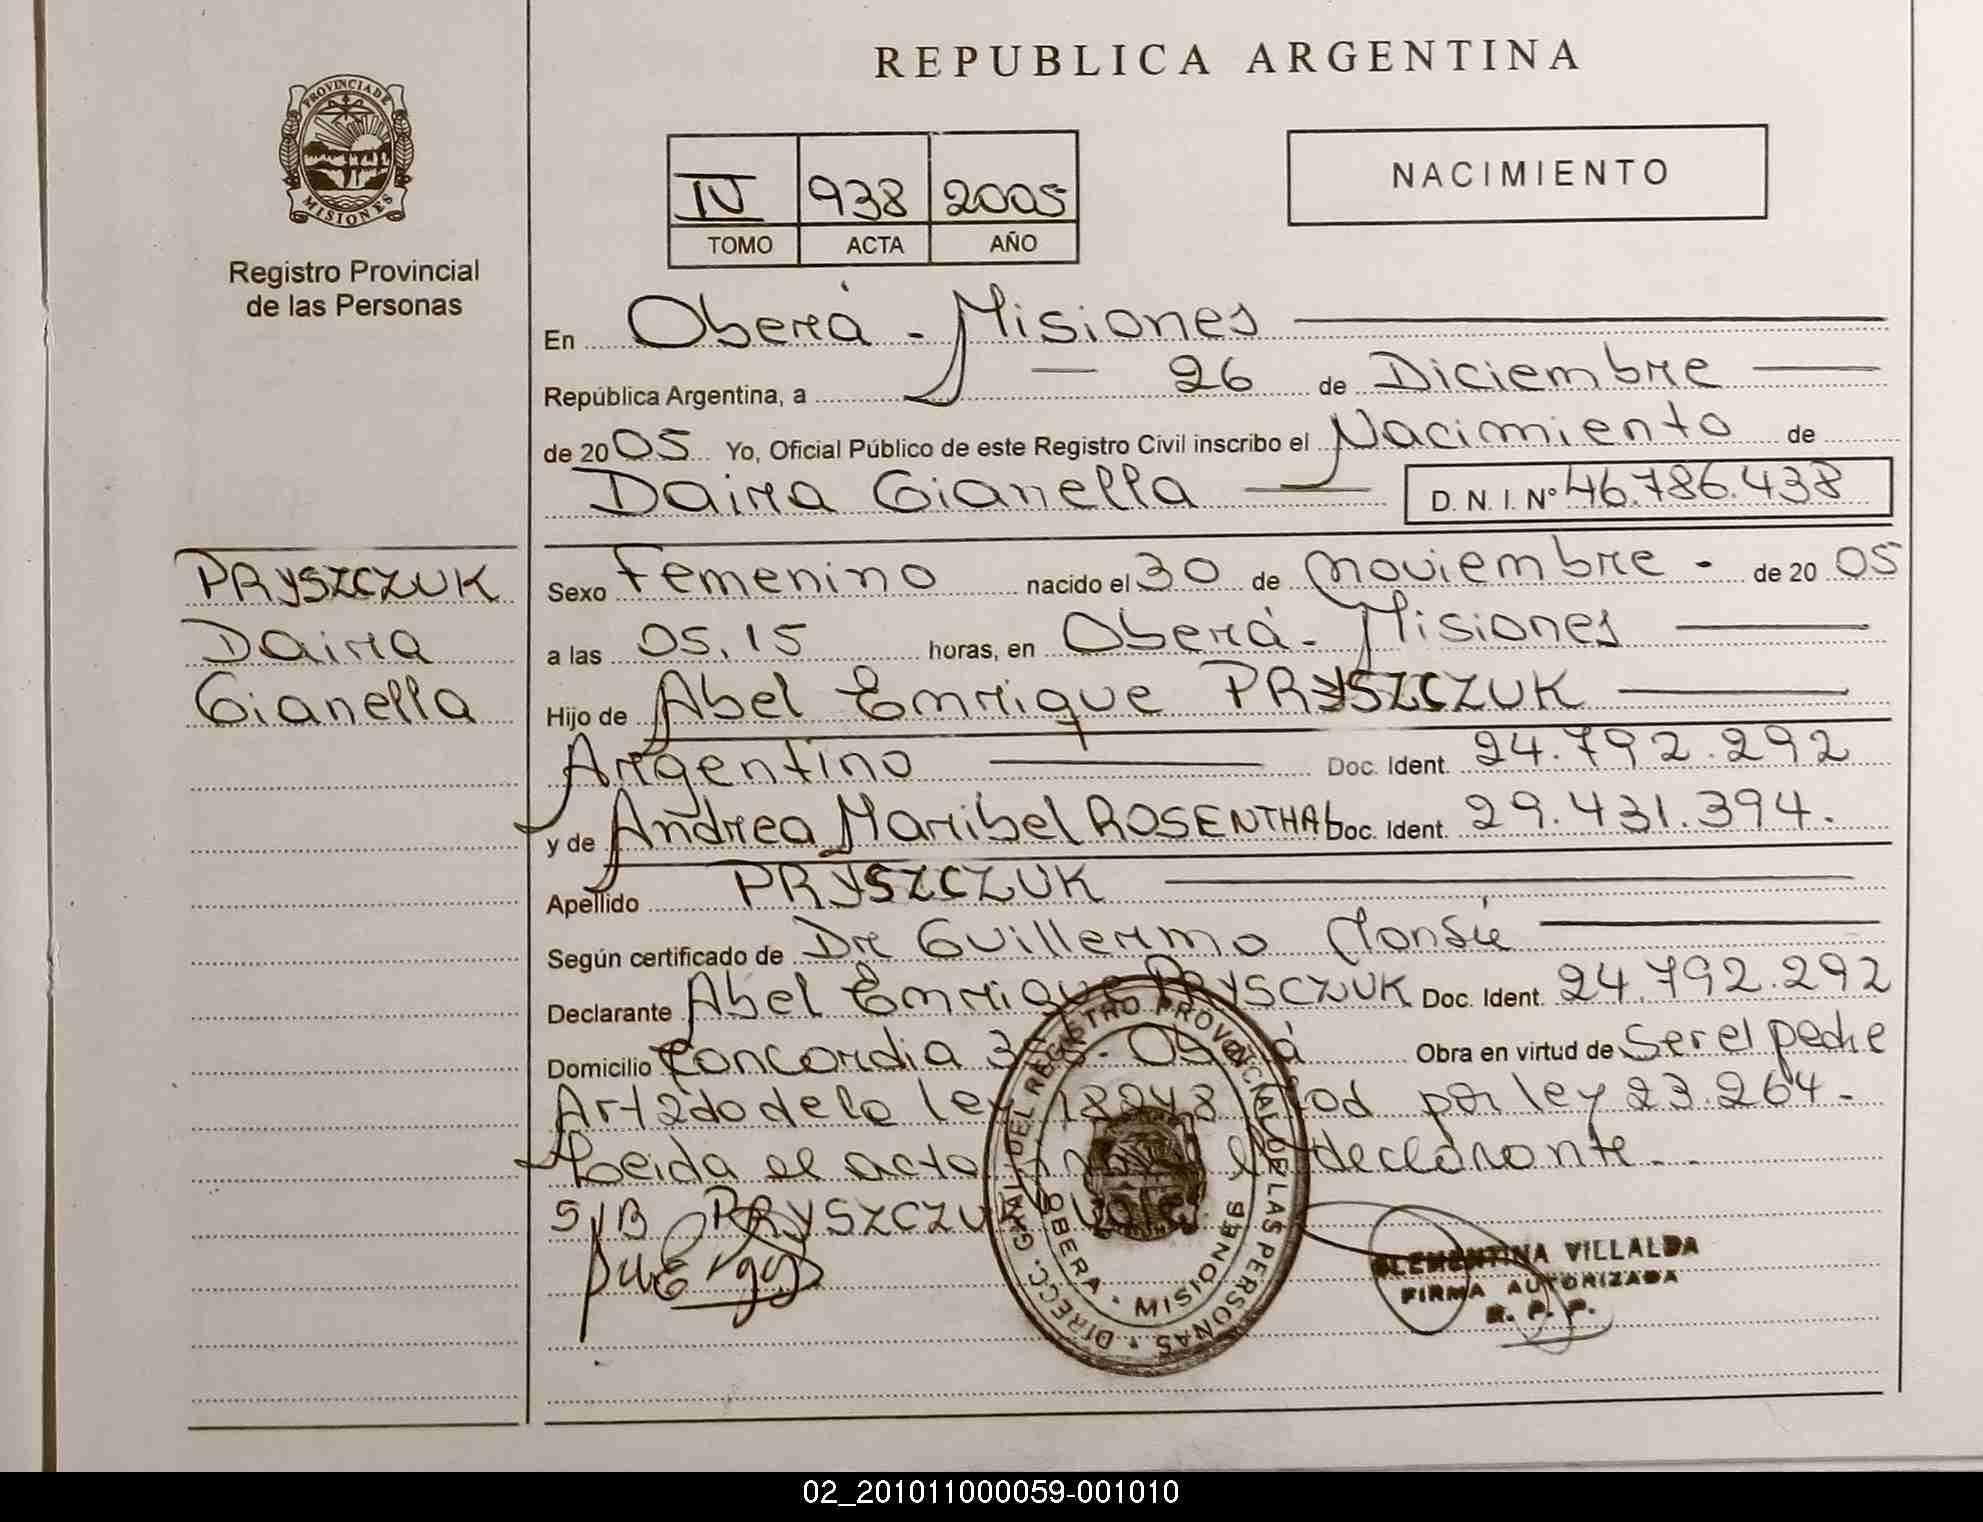 REPUBLICA ARGENTINA
PROVINCIA DE
MISIONES
Registro Provincial
de las Personas
IV 938 2005
TOMO ACTA AÑO
NACIMIENTO
En Oberá - Misiones
República Argentina, a 26 de Diciembre
de 2005 Yo, Oficial Público de este Registro Civil inscribo el Nacimiento de
Daira Gianella D. N. I. Nº 46.786.438
PRYSZCZUK
Daira
Gianella
Sexo Femenino nacido el 30 de Noviembre - de 20 05
a las 05.15 horas, en Oberá - Misiones
Hijo de Abel Enrrique PRYSZCZUK
Argentino Doc. Ident. 24.792.292
y de Andrea Maribel ROSENTHAL Doc. Ident. 29.431.394.
Apellido PRYSZCZUK
Según certificado de Dr Guillermo
Declarante Abel Enrrique PRYSCZUK Doc. Ident. 24.792.292
Domicilio Concordia - Oberá Obra en virtud de Ser el padre
Art 2do de la ley 18248 Mod por ley 23.264.-
Leida el acta el declarante.-
S/B PRYSZCZUK Vale
DIRECC. GRAL. DEL REGISTRO PROVINCIAL DE LAS PERSONAS
OBERA - MISIONES
CLEMENTINA VILLALBA
FIRMA AUTORIZADA
R. P. P.
02_201011000059-001010